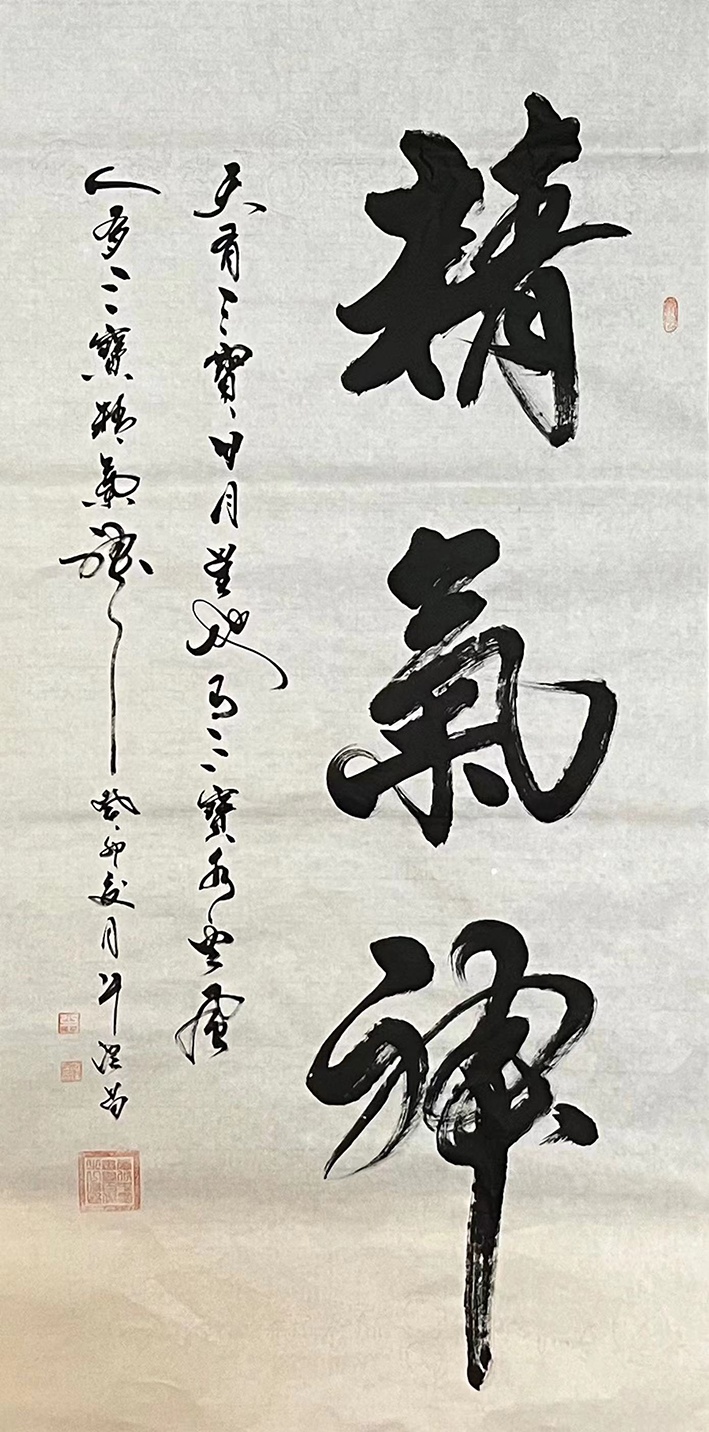 精氣神
天有三寶日月星地有三寶水火風
人有三寶精氣神
癸卯 月